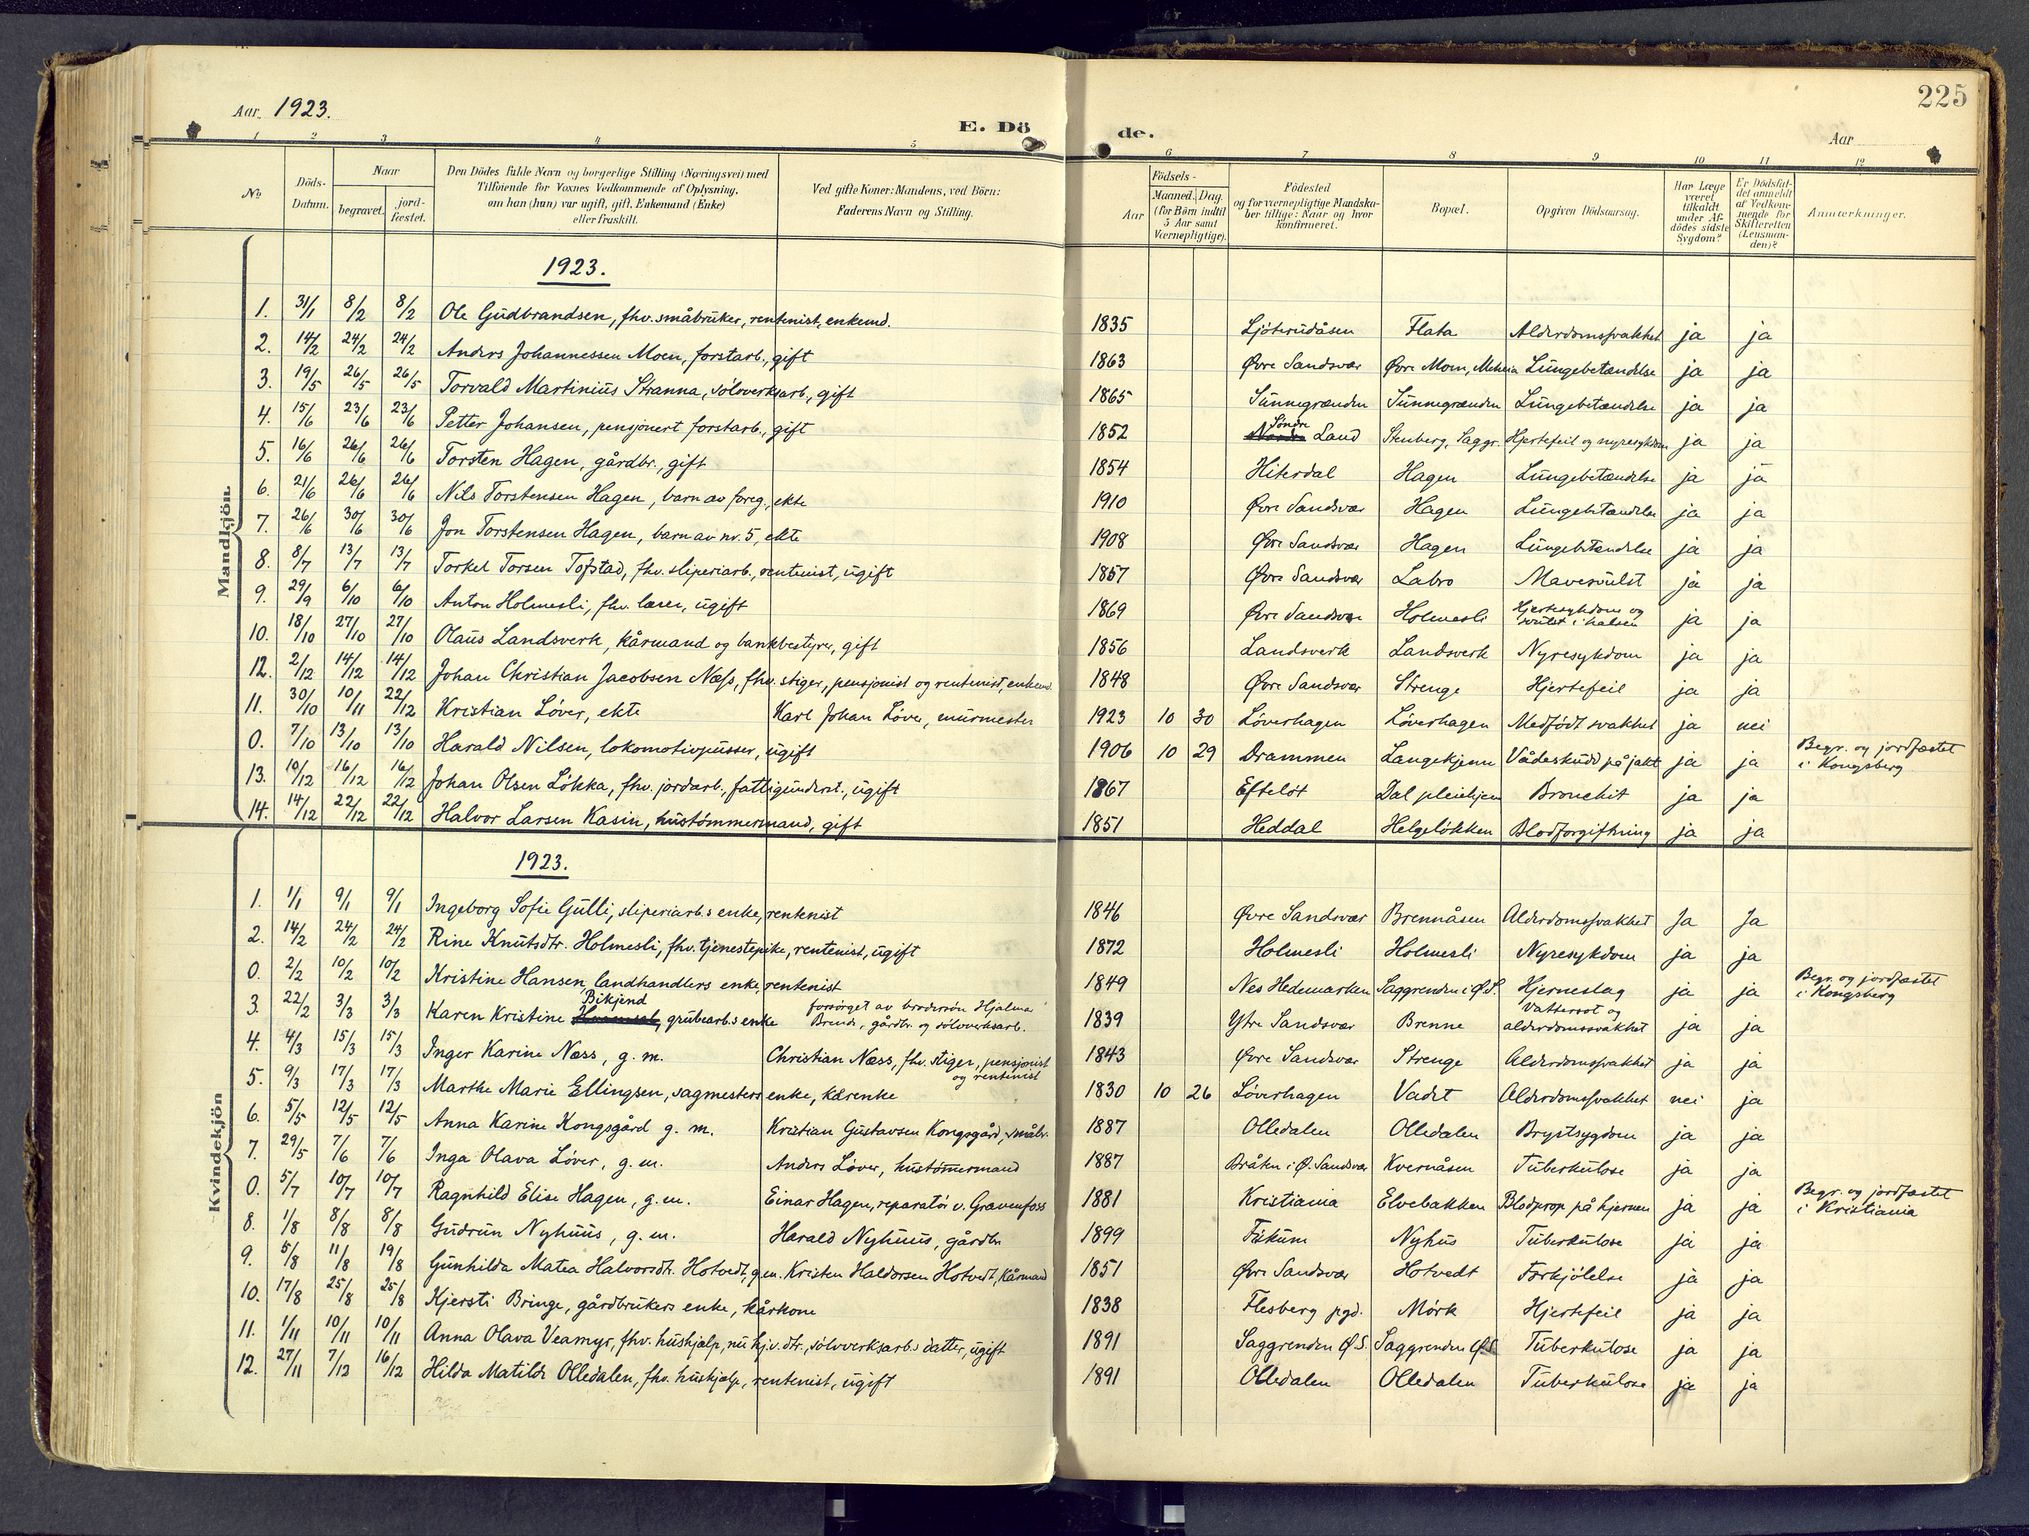 225
Aar. 1923.
E. Döde.
Aar
1 2 3 4 5 6 7 8 9 10 11 12
No
Döds-Datum.
Naar
begravet.
jordfæstet.
Den Dödes fulde Navn og borgerlige Stilling (Næringsvei) med
Tilföiende for Voxnes Vedkommende af Oplysning,
om han (hun) var ugift, gift, Enkemand (Enke)
eller fraskilt.
Ved gifte Koner: Mandens, ved Börn:
Faderens Navn og Stilling.
Födsels-
Aar
Maaned. Dag.
(for Börn indtil 5 Aar samt Værnepligtige).
Födested
og for værnepligtige Mandskaber tillige: Naar og hvor konfirmeret.
Bopæl.
Opgiven Dödsaarsag.
Har Læge været tilkaldt under Afdödes sidste Sygdom?
Er Dödsfaldet anmeldt af Vedkommende for Skifteretten (Lensmanden)?
Anmærkninger.
Mandkjön.
1923.
1. 31/1 8/2 8/2 Ole Gudbrandsen, fhv. småbruker, rentenist, enkemd. 1835 Ljøterudåsen Flata Alderdomssvakhet ja ja
2. 14/2 24/2 24/2 Anders Johannessen Moen, forstarb., gift 1863 Øvre Sandsvær Øvre Moen, Meheia Lungebetændelse ja ja
3. 19/5 26/5 26/5 Torvald Martinius Stranna, sølvverksarb., gift 1865 Sunnegrænden Sunnegrænden Lungebetændelse ja ja
4. 15/6 23/6 23/6 Petter Johansen, pensjonert forstarb., gift 1852 Nordre Søndre Land Stenberg, Saggr. Hjertefeil og nyresykdom ja ja
5. 16/6 26/6 26/6 Torsten Hagen, gårdbr., gift 1854 Hiterdal Hagen Lungebetændelse ja ja
6. 21/6 26/6 26/6 Nils Torstensen Hagen, barn av foreg., ekte 1910 Øvre Sandsvær Hagen Lungebetændelse ja ja
7. 26/6 30/6 30/6 Jon Torstensen Hagen, barn av nr. 5, ekte 1908 Øvre Sandsvær Hagen Lungebetændelse ja ja
8. 8/7 13/7 13/7 Torkel Torsen Tofstad, fhv. sliperiarb., rentenist, ugift 1857 Øvre Sandsvær Labro Mavesvulst ja ja
9. 29/9 6/10 6/10 Anton Holmesli, fhv. lærer, ugift 1869 Øvre Sandsvær Holmesli Hjertesykdom og svulst i halsen ja ja
10. 18/10 27/10 27/10 Olaus Landsverk, kårmand og bankbestyrer, gift 1856 Landsverk Landsverk Nyresykdom ja ja
12. 2/12 14/12 14/12 Johan Christian Jacobsen Næss, fhv. stiger, pensjonist og rentenist, enkemd. 1848 Øvre Sandsvær Strenge Hjertefeil ja ja
11. 30/10 10/11 22/12 Kristian Løver, ekte Karl Johan Løver, murmester 1923 10 30 Løverhagen Løverhagen Medfødt svakhet ja nei
0. 7/10 13/10 13/10 Harald Nilsen, lokomotivpusser, ugift 1906 10 29 Drammen Langekjenn Vådeskudd på jakt ja ja Begr. og jordfæstet i Kongsberg
13. 10/12 16/12 16/12 Johan Olsen Løkka, fhv. jordarb., fattigunderst., ugift 1867 Efteløt Dal pleiehjem Bronchit ja ja
14. 14/12 22/12 22/12 Halvor Larsen Kasin, hustømmermand, gift 1851 Heddal Helgeløkken Blodforgiftning ja ja
Kvindekjön
1923.
1. 1/1 9/1 9/1 Ingeborg Sofie Gulli, sliperiarb.s enke, rentenist 1846 Øvre Sandsvær Brennåsen Alderdomssvakhet Ja Ja
2. 14/2 24/2 24/2 Rine Knutsdtr. Holmesli, fhv. tjenestepike, rentenist, ugift 1872 Holmesli Holmesli Nyresykdom ja ja
0. 2/2 10/2 10/2 Kristine Hansen, landhandlers enke, rentenist 1849 Nes Hedemarken Saggrenden i Ø.S. Hjerneslag ja ja Begr. og jordfæstet i Kongsberg
3. 22/2 3/3 3/3 Karen Kristine Bikjend, grubearb.s enke forsørget av brodersøn Hjalmar Brenne, gårdbr. og sølvverksarb. 1839 Ytre Sandsvær Brenne Vattersot og alderdomssvakhet ja ja
4. 4/3 15/3 15/3 Inger Karine Næss, g. m. Christian Næss, fhv. stiger, pensjonist og rentenist 1843 Øvre Sandsvær Strenge Alderdomssvakhet ja ja
5. 9/3 17/3 17/3 Marthe Marie Ellingsen, sagmesters enke, kårenke 1830 10 26 Løverhagen Vadet Alderdomssvakhet nei ja
6. 5/5 12/5 12/5 Anna Karine Kongsgård g. m. Kristian Gustavsen Kongsgård, småbr. 1887 Olledalen Olledalen Brystsygdom ja ja
7. 29/5 7/6 7/6 Inga Olava Løver, g. m. Anders Løver, hustømmermand 1887 Bråten i Ø. Sandsvær Kvernåsen Tuberkulose ja ja
0. 5/7 10/7 10/7 Ragnhild Elise Hagen, g. m. Einar Hagen, reparatør v. Gravenfoss 1881 Kristiania Elvebakken Blodprop på hjernen ja ja Begr. og jordfæstet i Kristiania
8. 1/8 8/8 8/8 Gudrun Nyhuus, g. m. Harald Nyhuus, gårdbr 1899 Fiskum Nyhus Tuberkulose ja ja
9. 5/8 11/8 19/8 Gunhilda Matea Halvorsdtr. Hotvedt, g. m. Kristen Haldorsen Hotvedt, kårmand 1851 Øvre Sandsvær Hotvedt Forkjølelse ja ja
10. 17/8 25/8 25/8 Kjersti Bringe, gårdbrukers enke, kårkone 1838 Flesberg pgd. Mørk Hjertefeil ja ja
11. 1/11 10/11 10/11 Anna Olava Veamyr, fhv. hushjælp, nu hj.v. dtr., sølvverksarb.s datter, ugift 1891 Saggrenden Ø.S. Saggrenden Ø.S. Tuberkulose ja ja
12. 27/11 7/12 16/12 Hilda Matilde Olledalen, fhv. hushjælp, rentenist, ugift 1891 Olledalen Olledalen Tuberkulose ja ja